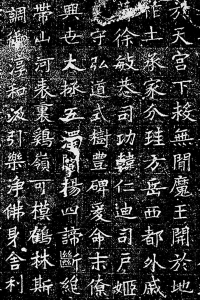 於天宮下救無間魔王開於地
作土承家分珪方岳西都外戚
徐敬恭司功韓仁迪司戶姬
守弘道式樹豐碑爰命末僚
興世大拯五濁闡楊四諦斷絕
帶山河表裏鷄嶺可模鶴林斯
調御淳和汲引樂淨佛身舍利